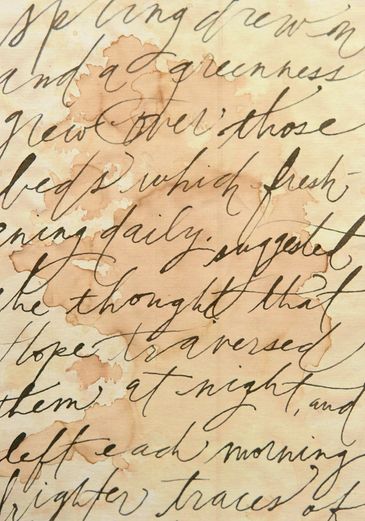 spring drew on
and a greenness
grew over those
beds which fresh-
ening daily, suggested
the thought that
Hope traversed
them at night, and
left each morning
brighter traces of